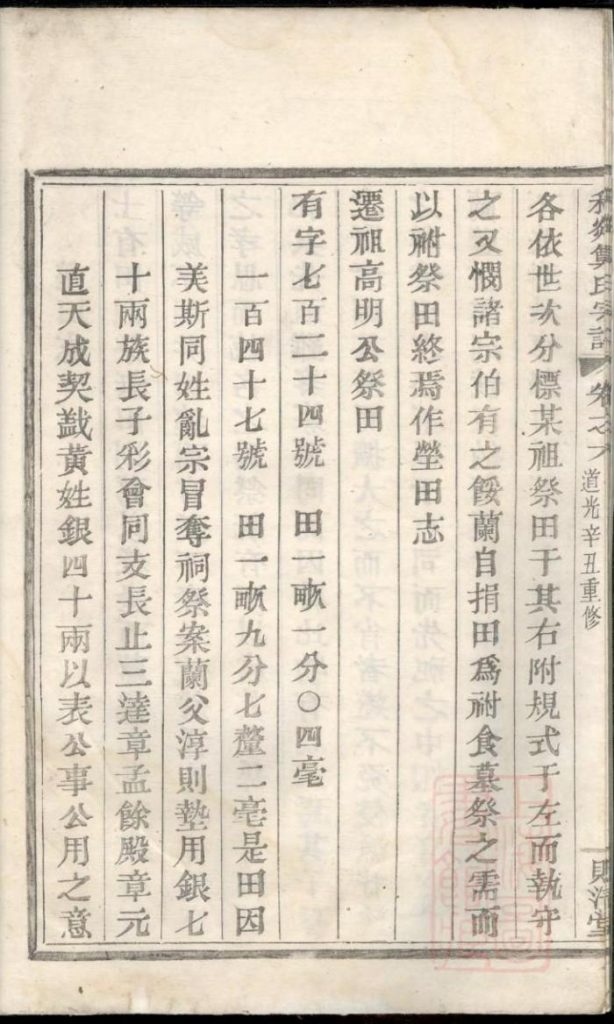 氏宗譜 卷之六 道光辛丑重修 堂
各依世次分標某祖祭田于其右附規式于左而執守
之又憫諸宗伯有之餒蘭自捐田爲祔食墓祭之需而
以祔祭田終焉作塋田志
遷祖高明公祭田
有字七百二十四號田一畝一分〇四毫
一百四十七號 田一畝九分七釐二毫是田因
美斯同姓亂宗冒奪祠祭案蘭父淳則墊用銀七
十兩族長子彩會同支長止三達章孟餘殿章元
直天成契戤黃姓銀四十兩以表公事公用之意